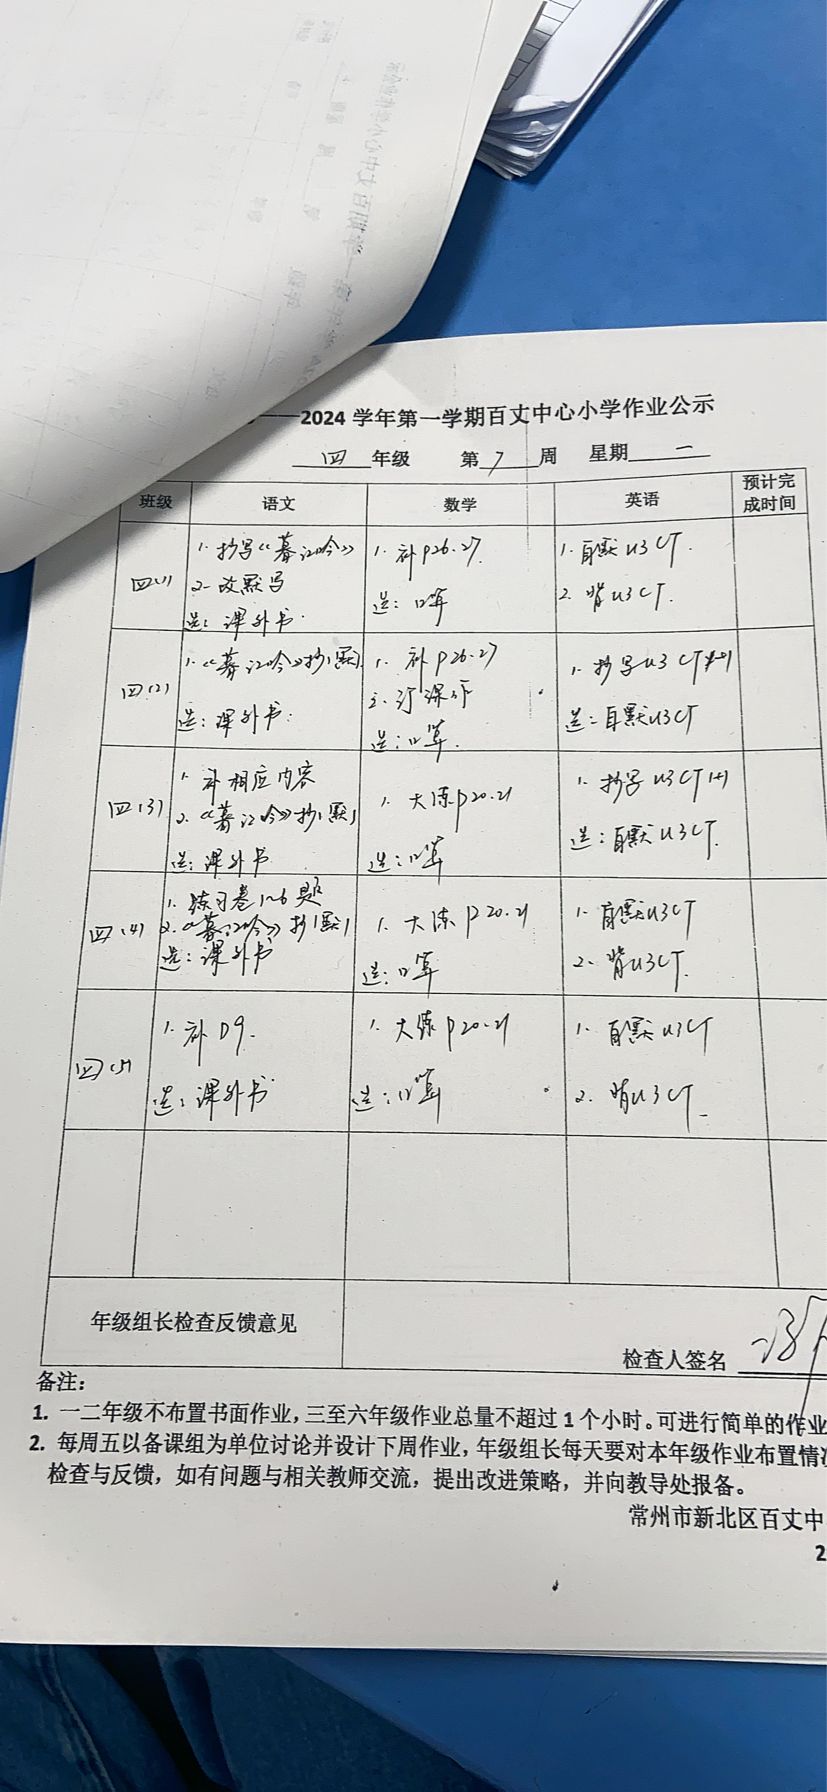 ——2024 学年第一学期百丈中心小学作业公示
四 年级 第 7 周 星期 一
班级 语文 数学 英语 预计完成时间
四(1)
1. 抄写《暮江吟》
2. 改默写
选: 课外书.
1. 补 P26.27.
选: 口算
1. 自默 U3 CT.
2. 背 U3 CT.
四(2)
1. 《暮江吟》抄1默1
选: 课外书.
1. 补 P26.27
2. 订课作
选: 口算.
1. 抄写 U3 CT
选: 自默 U3CT
四(3)
1. 补相应内容
2. 《暮江吟》抄1默1
选: 课外书
1. 大练 P20.21
选: 口算
1. 抄写 U3CT 1+1
选: 自默 U3CT.
四(4)
1. 练习卷 1~6 题
2. 《暮江吟》抄1默1
选: 课外书
1. 大练 P20.21
选: 口算
1. 自默U3CT
2. 背U3CT.
四(5)
1. 补 D9.
选: 课外书
1. 大练 P20.21
选: 口算
1. 自默 U3CT
2. 背U3CT.
年级组长检查反馈意见
检查人签名
备注:
1. 一二年级不布置书面作业,三至六年级作业总量不超过 1 个小时。可进行简单的作业
2. 每周五以备课组为单位讨论并设计下周作业,年级组长每天要对本年级作业布置情
检查与反馈,如有问题与相关教师交流,提出改进策略,并向教导处报备。
常州市新北区百丈中
2